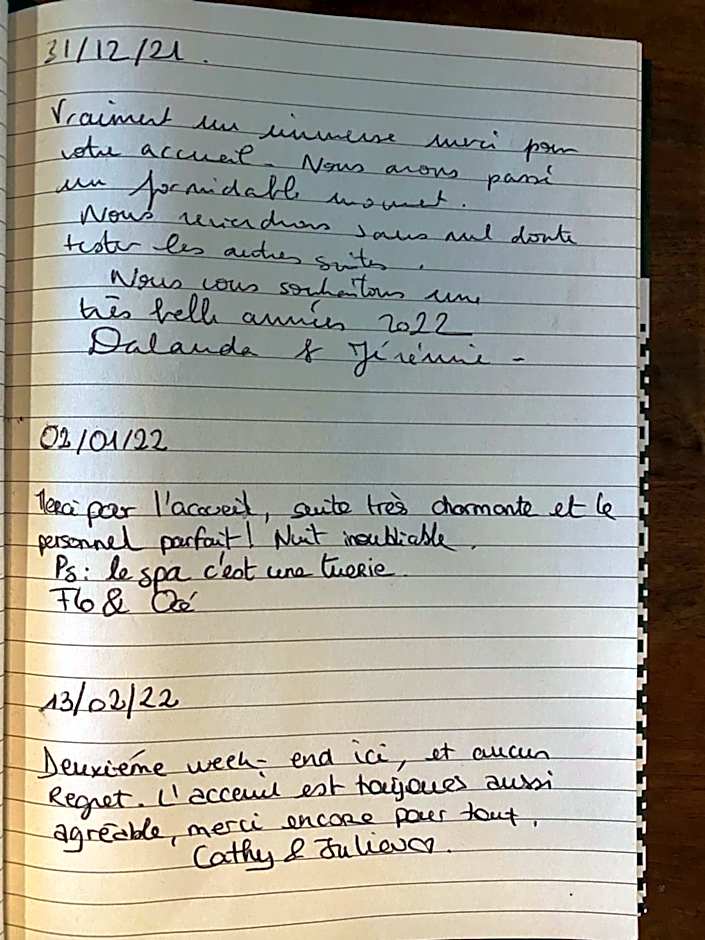 31/12/21.
Vraiment un immense merci pour
votre accueil. Nous avons passé
un formidable moment.
Nous reviendrons sans nul doute
tester les autres suites.
Nous vous souhaitons une
très belle années 2022
Dalanda & Jérémie -
02/01/22
Merci pour l'accueil, suite très charmante et le
personnel parfait! Nuit inoubliable.
Ps: le spa c'est une tuerie.
Flo & Océ
13/02/22
Deuxième week-end ici, et aucun
Regret. L'acceuil est toujours aussi
agréable, merci encore pour tout.
Cathy & Julien